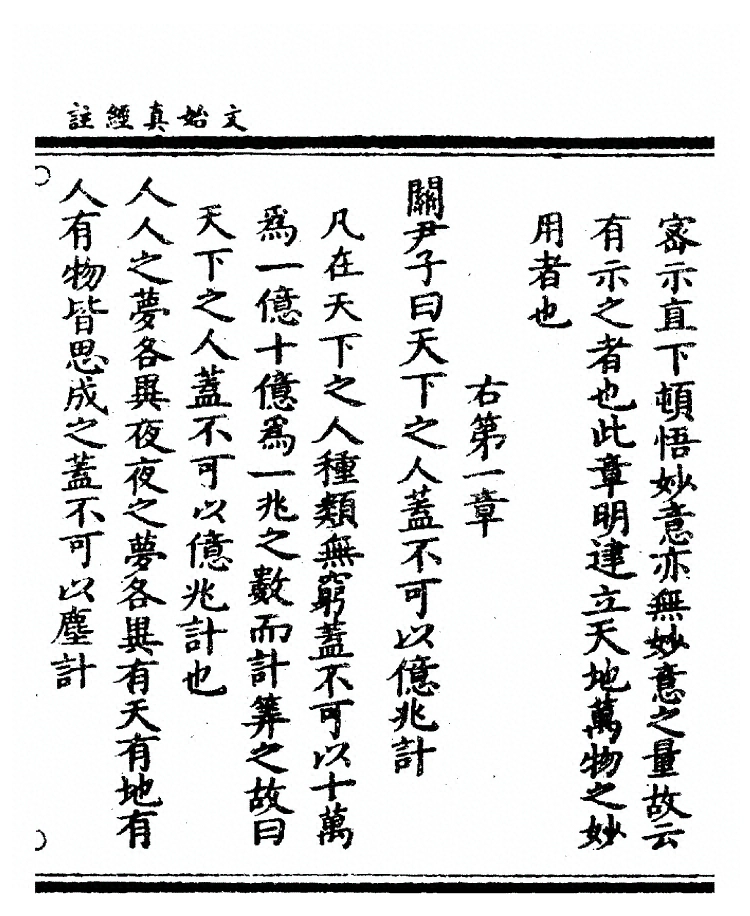 文始真經註
密示直下頓悟妙意亦無妙意之量故云
有示之者也此章明建立天地萬物之妙
用者也
右第一章
關尹子曰天下之人蓋不可以億兆計
凡在天下之人種類無窮蓋不可以十萬
爲一億十億爲一兆之數而計筭之故曰
天下之人蓋不可以億兆計也
人人之夢各異夜夜之夢各異有天有地有
人有物皆思成之蓋不可以塵計